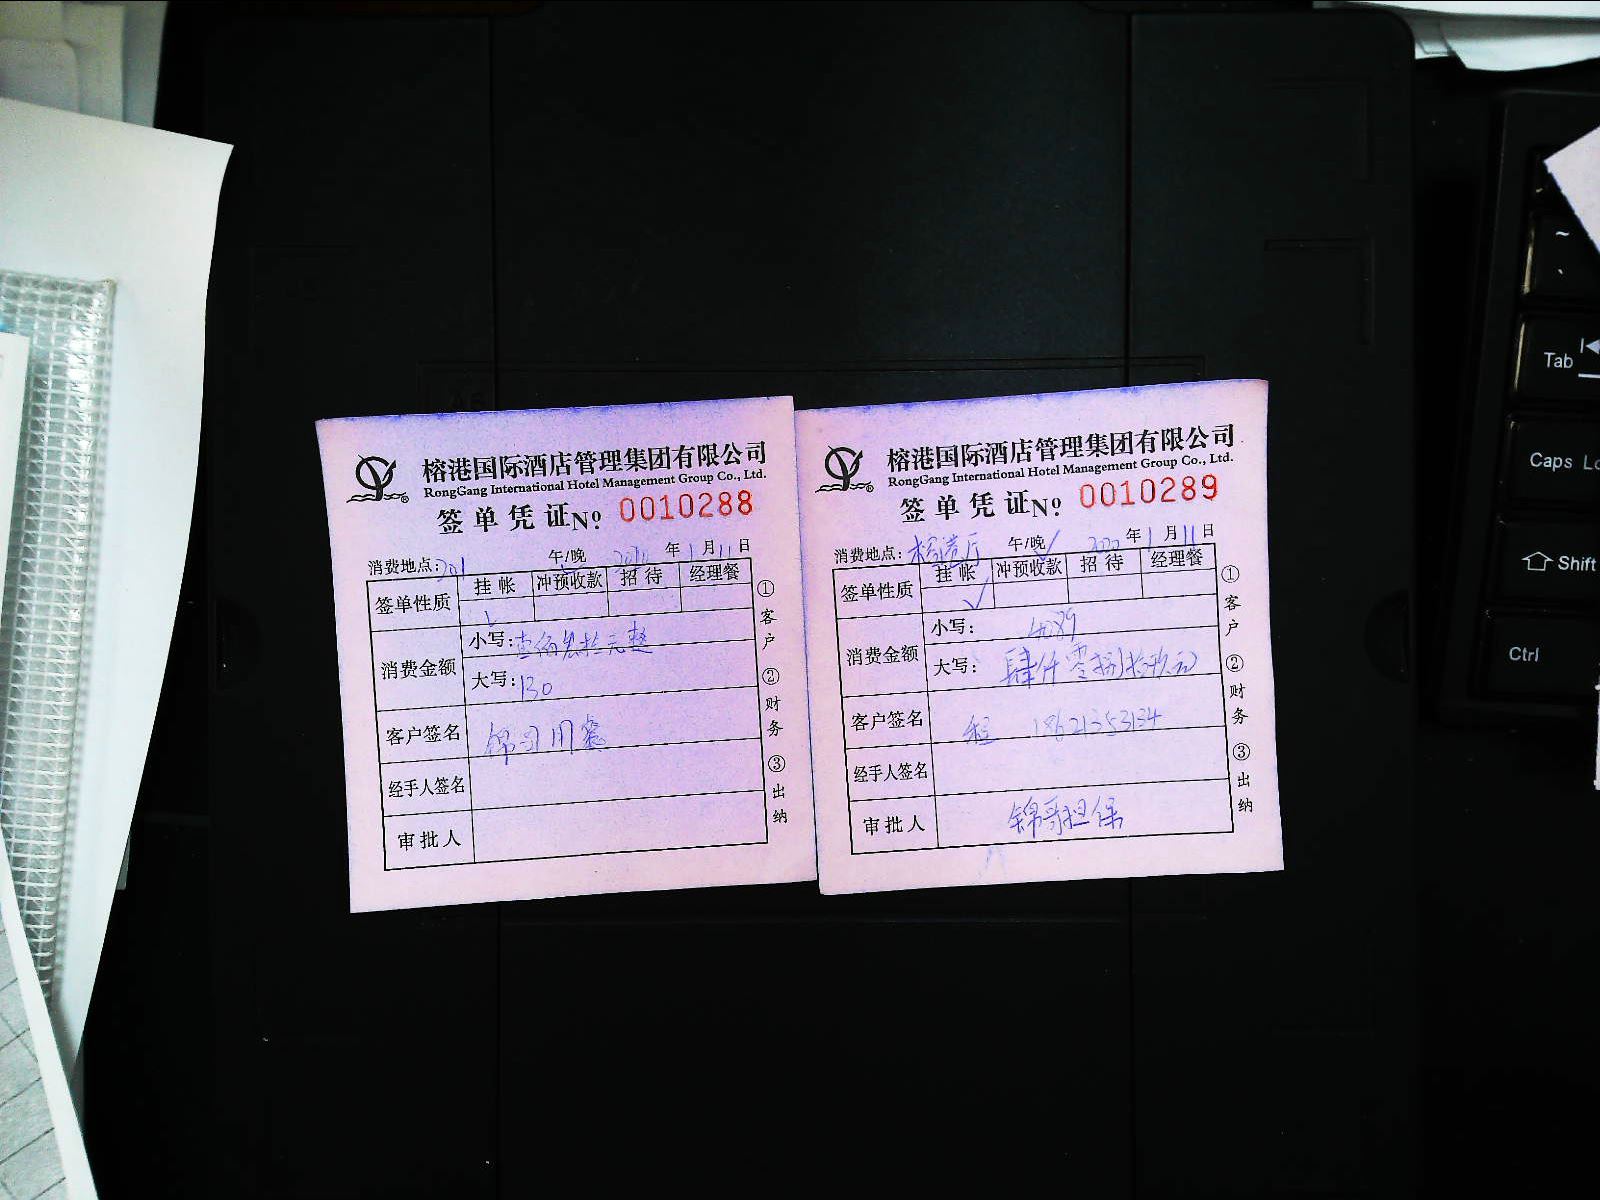 榕港国际酒店管理集团有限公司
RongGang International Hotel Management Group Co., Ltd.
签单凭证 No 0010288
消费地点: 201 午/晚 2020 年 1 月 11 日
签单性质 挂帐 冲预收款 招待 经理餐
✓
消费金额 小写: 壹佰叁拾元整
大写: 130
客户签名
经手人签名
审批人
① 客户 ② 财务 ③ 出纳
榕港国际酒店管理集团有限公司
RongGang International Hotel Management Group Co., Ltd.
签单凭证 No 0010289
消费地点: 午/晚 ✓ 2020 年 1 月 11 日
签单性质 挂帐 冲预收款 招待 经理餐
✓
消费金额 小写: 4089
大写: 肆仟零捌拾玖元
客户签名 程 18621353134
经手人签名
审批人 锦哥担保
① 客户 ② 财务 ③ 出纳
~
Tab
Caps Lo
Shift
Ctrl